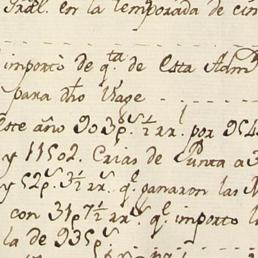 Gral. en la temporada de cin
importó de qta. de Esta Adm
para dho Viage
este año 903 ps. ½ rr. l por 954
y 11502. Crias de Punta a 3
y 52 ps. 3½ rr. q. e ganaron las
con 31 p 7½ rr. s q. e importo l
la de 935 ps.